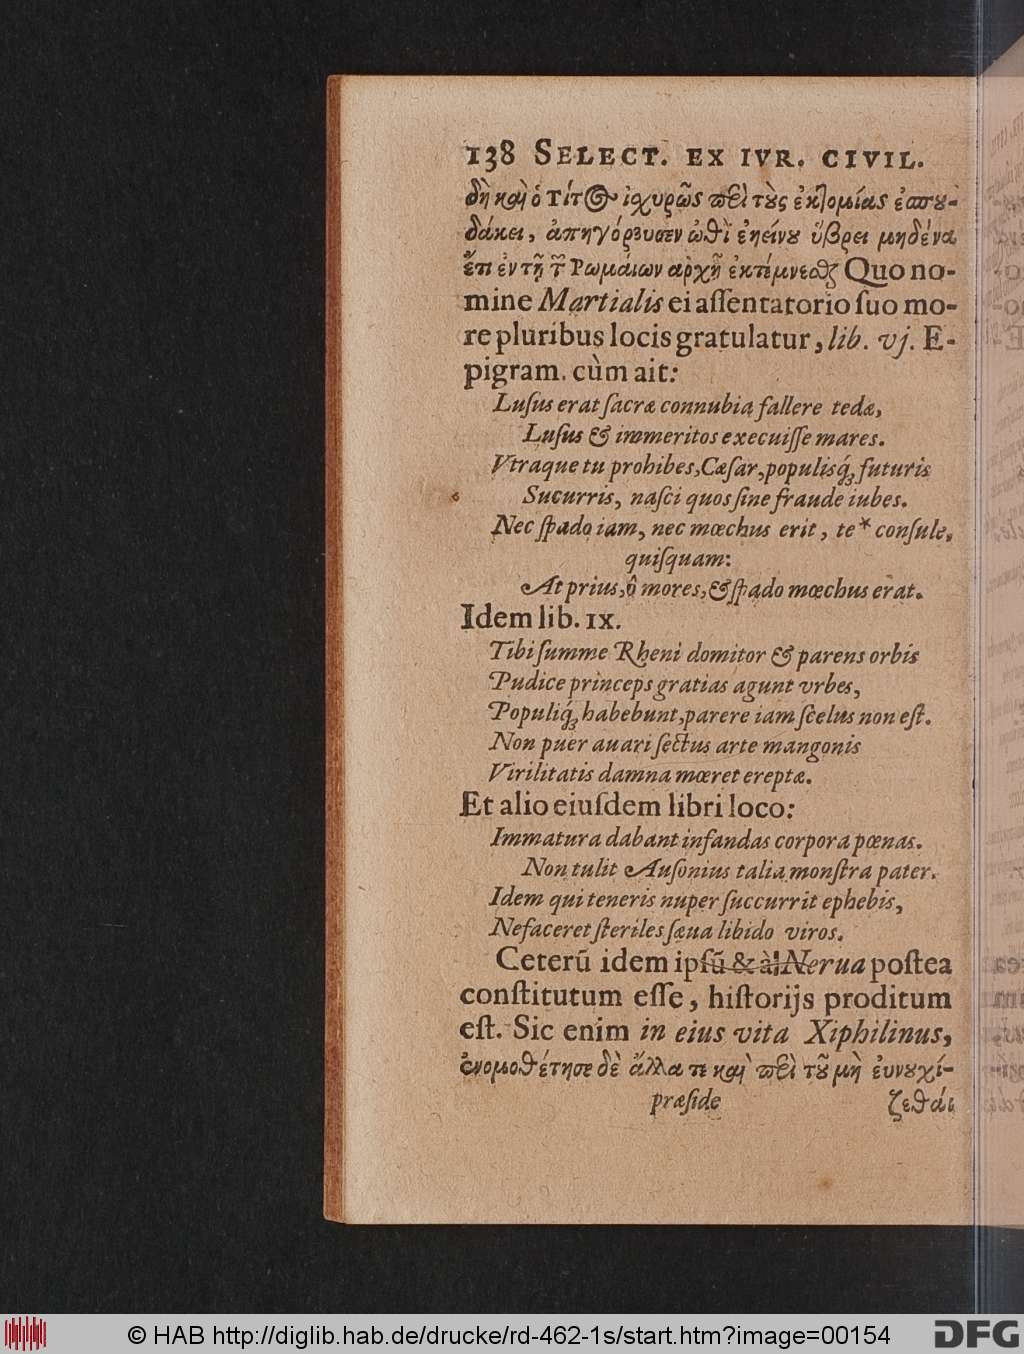 138 SELECT. EX IVR. CIVIL.
δὴ καὶ ὁ Τίτος ἰχυρῶς περὶ τοὺς ἐκτομίας ἐσπου-
δάκει, ἀπηγόρευσεν ὠθὶ ἐκείνου ὕβρει μηδένα
ἔτι ἐν τῇ τῶν Ρωμαίων ἀρχῇ ἐκτέμνεσθαι Quo no-
mine Martialis ei aſſentatorio ſuo mo-
re pluribus locis gratulatur, lib. vj. E-
pigram. cùm ait:
Luſus erat ſacræ connubia fallere tedæ,
Luſus & immeritos execuiſſe mares.
Vtraque tu prohibes, Cæſar, populisq́; futuris
Sucurris, naſci quos ſine fraude iubes.
Nec ſpado iam, nec mœchus erit, te * conſule,
quiſquam:
At prius, ô mores, & ſpado mœchus erat.
Idem lib. IX.
Tibi ſumme Rheni domitor & parens orbis
Pudice princeps gratias agunt vrbes,
Populiq́; habebunt, parere iam ſcelus non eſt.
Non puer auari ſectus arte mangonis
Virilitatis damna mœret ereptæ.
Et alio eiuſdem libri loco:
Immatura dabant infandas corpora pœnas.
Non tulit Auſonius talia monſtra pater.
Idem qui teneris nuper ſuccurrit ephebis,
Ne faceret ſteriles ſæua libido viros.
Ceterũ idem ipſũ & à Nerua poſtea
conſtitutum eſſe, hiſtorijs proditum
eſt. Sic enim in eius vita Xiphilinus,
ἐνομοθέτησε δὲ ἄλλα τε καὶ περὶ τοῦ μὴ εὐνουχί-
præſide ζεθάι
© HAB http://diglib.hab.de/drucke/rd-462-1s/start.htm?image=00154 DFG